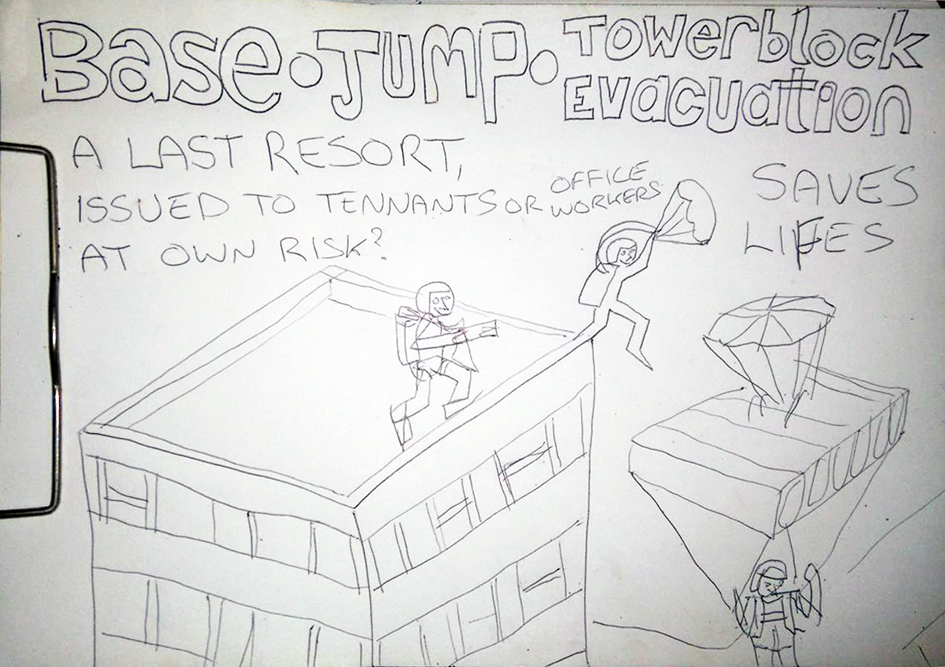 Base • Jump • Towerblock
Evacuation
A LAST RESORT,
ISSUED TO TENNANTS OR OFFICE WORKERS
AT OWN RISK?
SAVES
LIFES